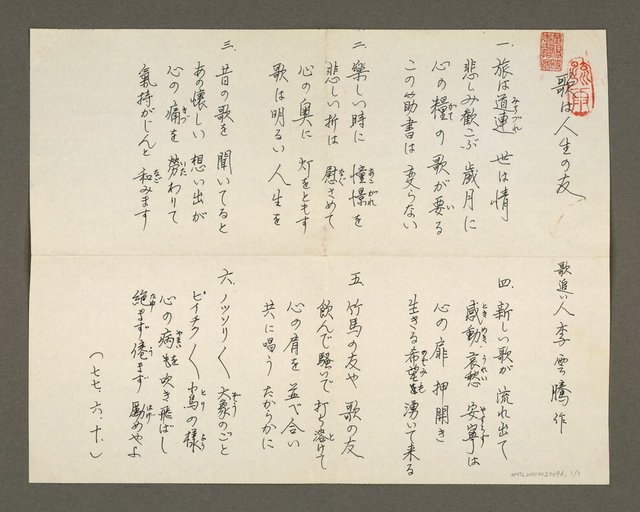 歌は人生の友
一 旅は道連 世は情
悲しみ歓こぶ 歳月に
心の糧の 歌が要る
この筋書は 変らない
二 楽しい時に 憧憬を
悲しい折は 慰さめて
心の奥に 灯をともす
歌は明るい 人生を
三 昔の歌を 聞いてると
あの懐しい 想い出が
心の痛を 労わりて
氣持がじんと 和みます
歌追い人 李雲騰 作
四 新しい歌が 流れ出て
感動 哀愁 安寧は
心の扉 押開き
生きる希望も 湧いて来る
五 竹馬の友や 歌の友
飲んで騒いで 打ち溶けて
心の肩を 並べ合い
共に唱う たからかに
六 ノッソリ〱 大象のごと
ピイチク〱 小鳥の様
心の病を 吹き飛ばし
絶まず倦まず 励めやよ
(七七、六、十、)
NMTL20100020096, 1/1